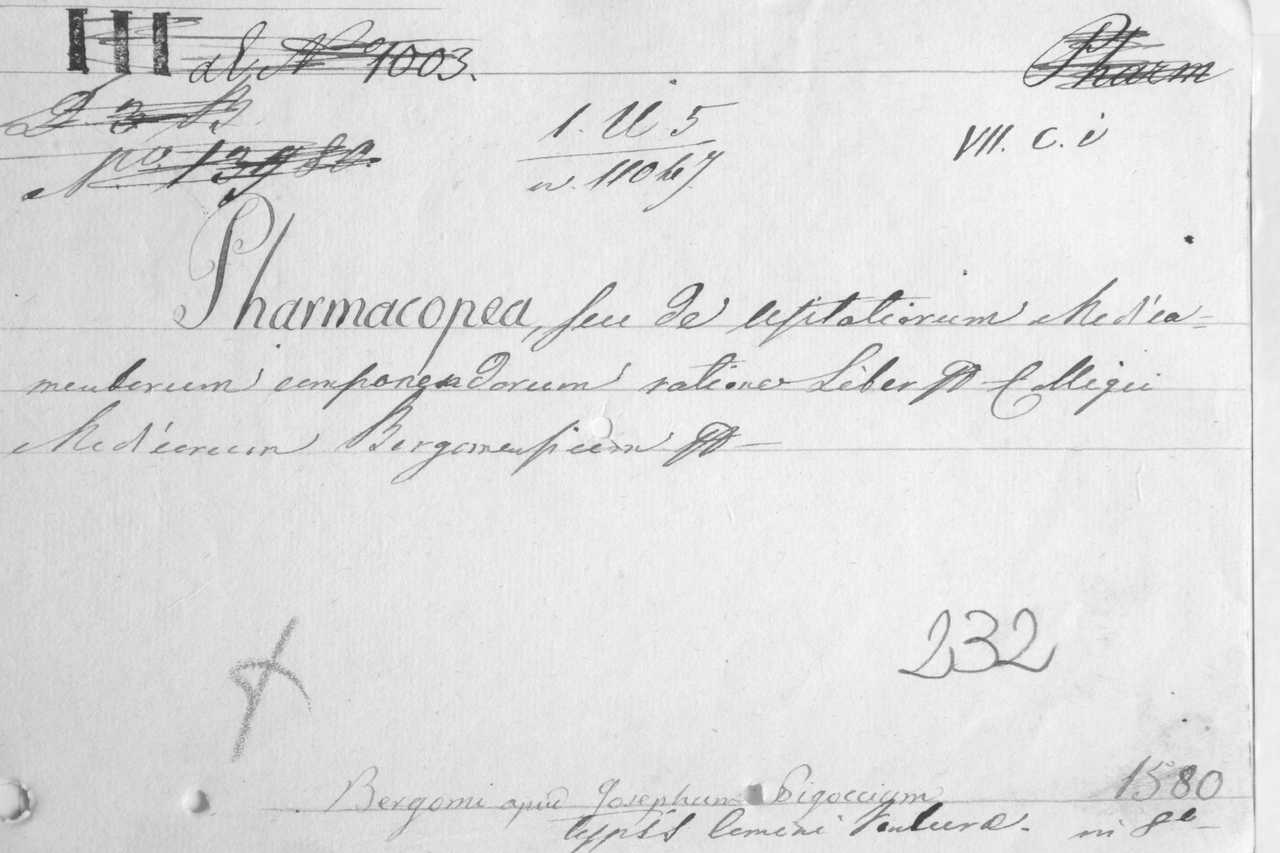 III ad N° 1003. Pharm
D 3 B
N° 13980. 1. U 5 VII. C. i
n. 11047
Pharmacopea, seu de usitatiorum Medica=
mentorum componendorum ratione Liber Collegii
Medicorum Bergomensium
232
Bergomi apud Josephum Pigoccium 1580
typis Comini Venturæ. in 8°